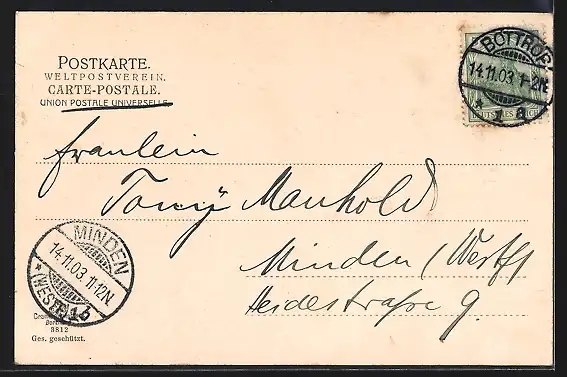 POSTKARTE.
WELTPOSTVEREIN.
CARTE-POSTALE.
UNION POSTALE UNIVERSELLE
BOTTROP
14.11.03. 1-2N.
* 1 a
Fräulein
Tony Manhold
Minden (Westf)
Heidestraße 9.
MINDEN
14.11.03. 11-12N
* (WESTF) 1 b
3812
Ges. geschützt.